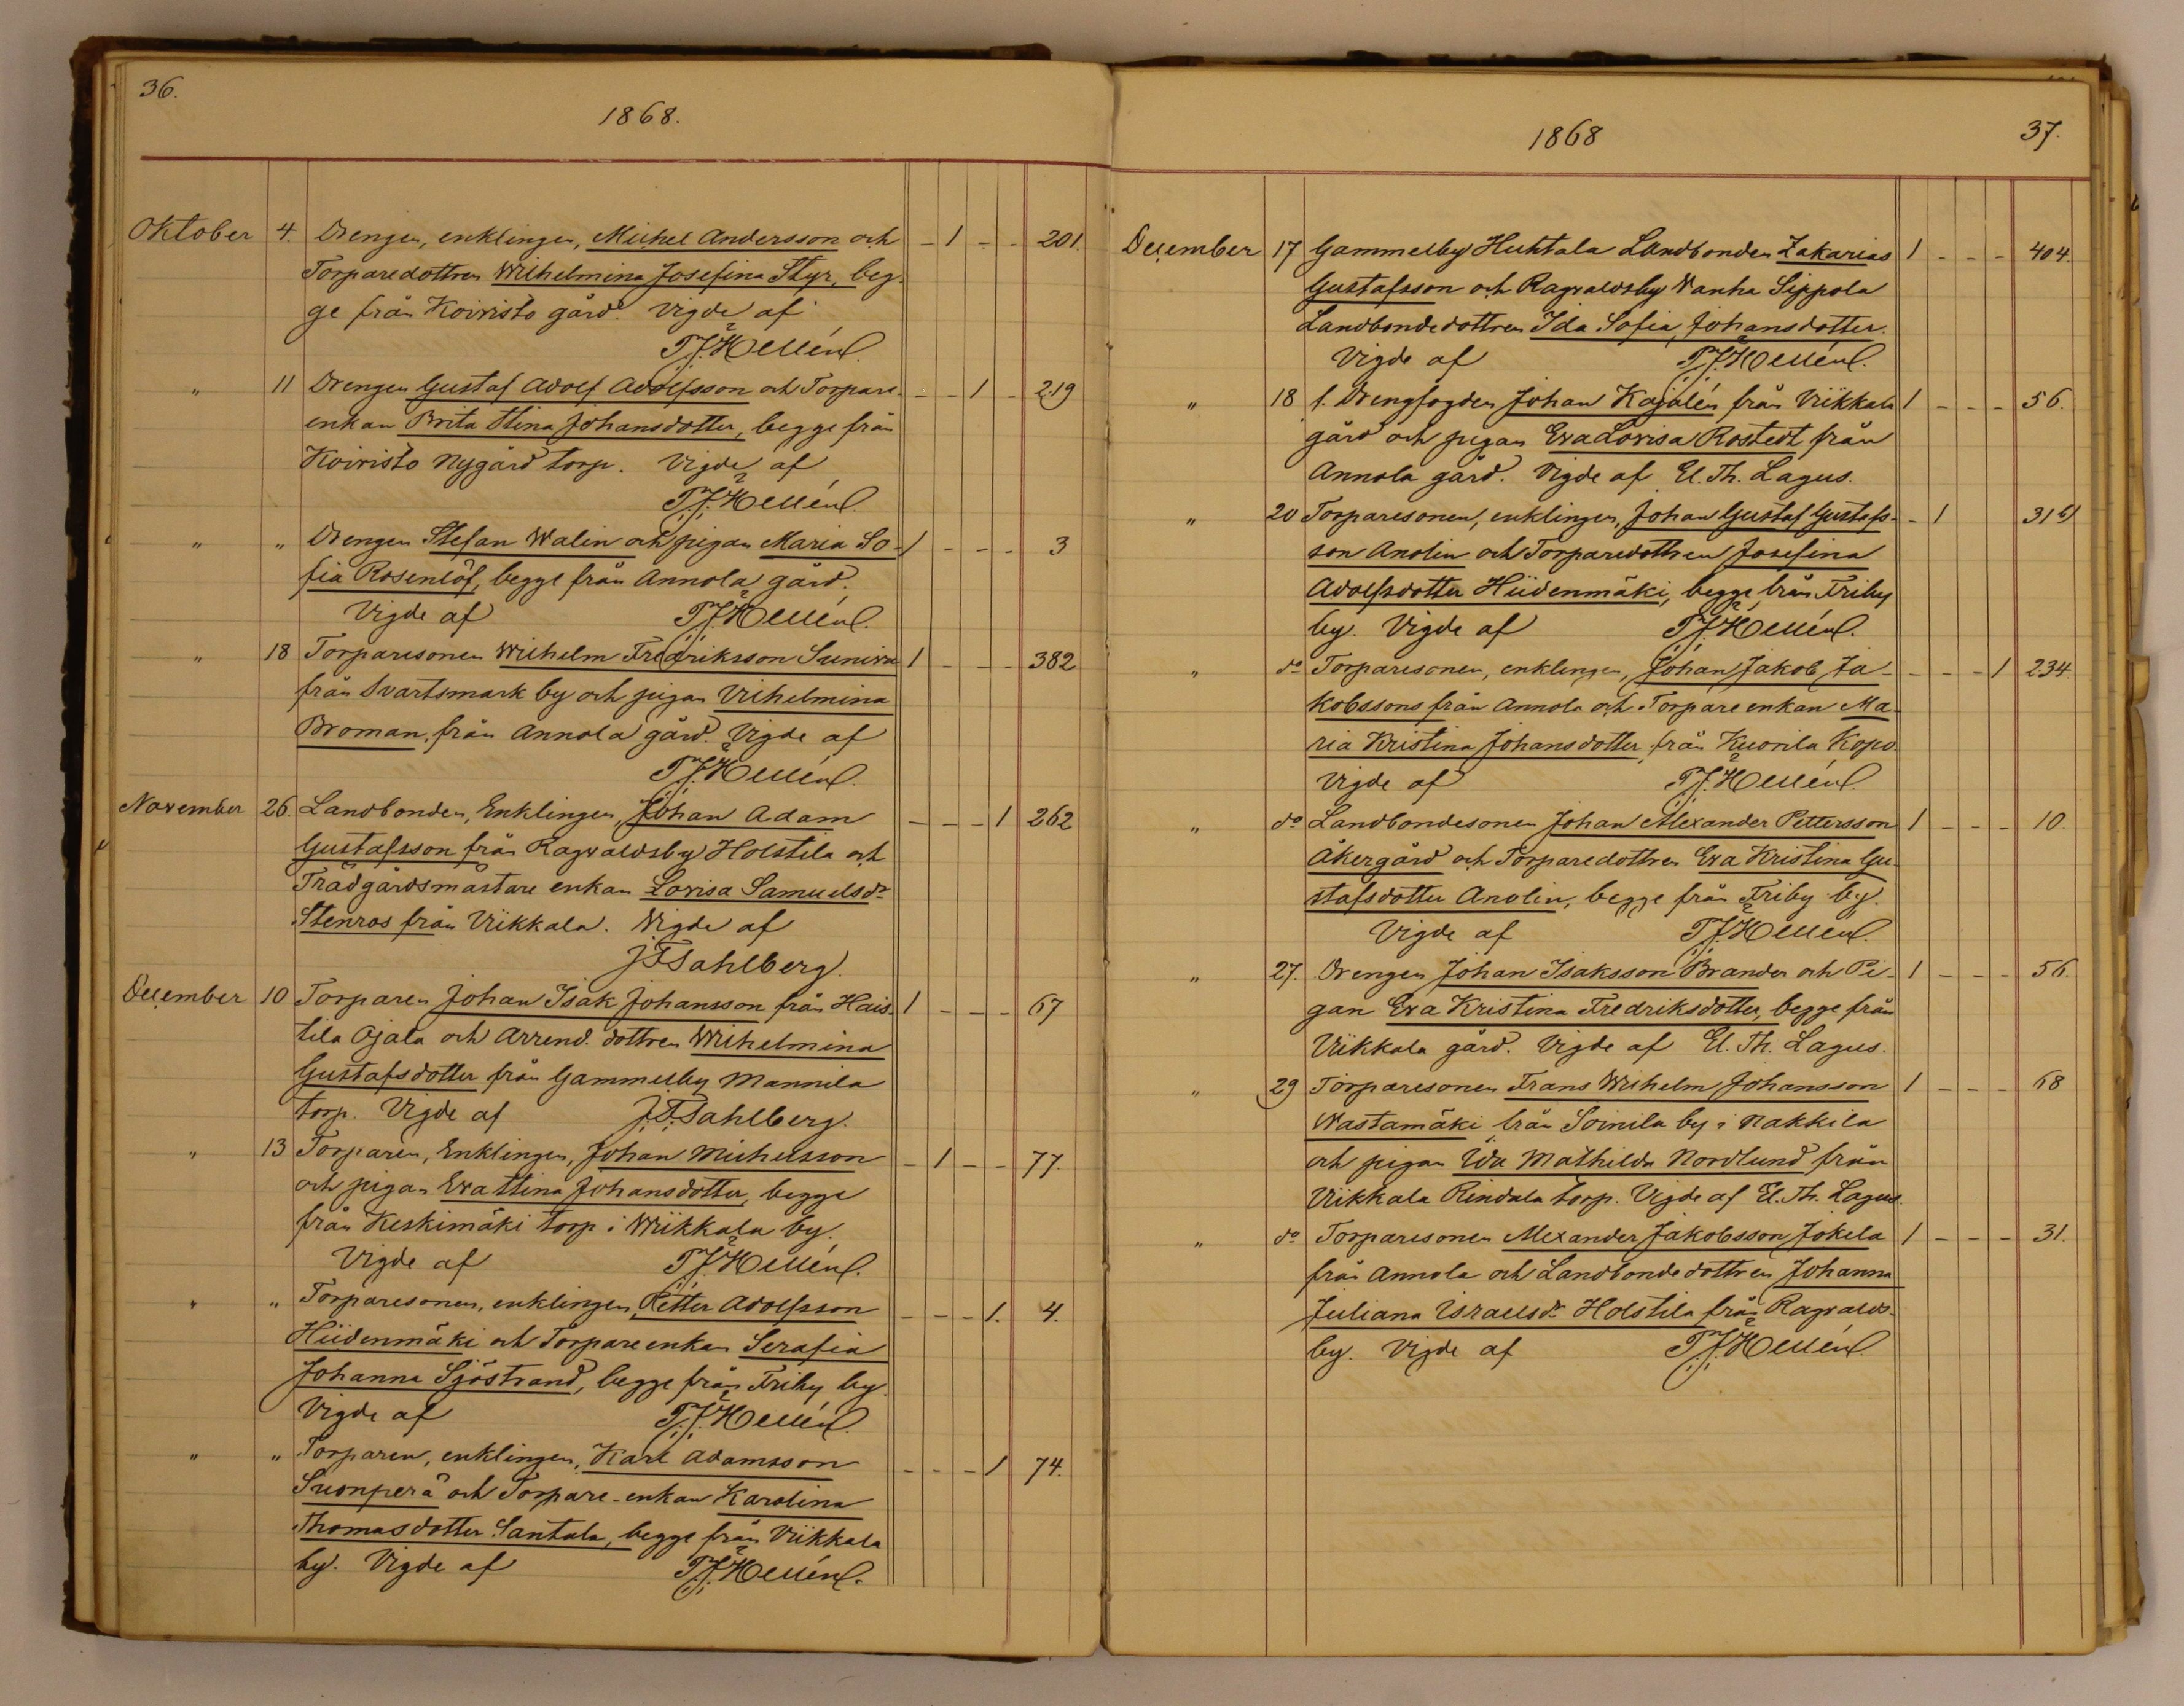 36.
1868.
Oktober 4. Drengen, enklingen, Michel Andersson och - 1 - - 201.
Torparedottren Wilhelmina Josefina Styr, beg-
ge från Koivisto gård. Vigde af
T.J. Hellén.
" 11 Drengen Gustaf Adolf Adolfsson och Torpare- - - 1 - 219
enkan Brita Stina Johansdotter, begge från
Koivisto Nygård torp. Vigde af
T.J. Hellén.
" " Drengen Stefan Walin och pigan Maria So- 1 - - - 3
fia Rosenlöf, begge från Annola gård.
Vigde af T.J. Hellén.
" 18 Torparesonen Wilhelm Fredriksson Suniva 1 - - - 382
från Svartsmark by och pigan Vilhelmina
Broman, från Annola gård. Vigde af
T.J. Hellén.
November 26. Landbonden, Enklingen, Johan Adam - - - 1 262
Gustafsson från Ragvaldsby Holstila och
Trädgårdsmästare enkan Lovisa Samuelsdr
Stenros från Viikkala. Vigde af
J.F. Sahlberg.
December 10 Torparen Johan Isak Johansson från Hais- 1 - - - 67
tila Ojala och Arrend. dottren Wilhelmina
Gustafsdotter från Gammelby Mannila
torp. Vigde af J.F. Sahlberg.
" 13 Torparen, Enklingen, Johan Michelsson - 1 - - 77.
och pigan Eva Stina Johansdotter, begge
från Keskimäki torp i Wiikkala by.
Vigde af T.J. Hellén.
" " Torparesonen, enklingen, Petter Adolfsson - - - 1. 4.
Hiidenmäki och Torpare enkan Serafia
Johanna Sjöstrand, begge från Friby by.
Vigde af T.J. Hellén.
" " Torparen, enklingen, Karl Adamsson - - - 1 74.
Suonperä och Torpare-enkan Karolina
Thomasdotter Santala, begge från Viikkala
by. Vigde af T.J. Hellén.
1868
37.
December 17 Gammelby Huhtala Landbonden Zakarias 1 - - - 404.
Gustafsson och Ragvaldsby Wanha Sippola
Landbondedottren Ida Sofia Johansdotter.
Vigde af T.J. Hellén.
" 18 f. Drengfogden Johan Kajalén från Viikkala 1 - - - 56.
gård och pigan Eva Lovisa Rostedt från
Annola gård. Vigde af El. Th. Lagus.
" 20 Torparesonen, enklingen, Johan Gustaf Gustafs- - 1 316)
son Anolin och Torparedottren Josefina
Adolfsdotter Hiidenmäki, begge från Friby
by. Vigde af T.J. Hellén.
" do Torparesonen, enklingen, Johan Jakob Ja- - - - 1 234.
kobssons från Annola och Torpare enkan Ma-
ria Kristina Johansdotter från Kuorila Kopo.
Vigde af T.J. Hellén.
" do Landbondesonen Johan Alexander Pettersson 1 - - - 10.
Åkergård och Torparedottren Eva Kristina Gu-
stafsdotter Anolin, begge från Friby by.
Vigde af T.J. Hellén.
" 27. Drengen Johan Isaksson Brander och Pi- 1 - - - 56.
gan Eva Kristina Fredriksdotter, begge från
Viikkala gård. Vigde af El. Th. Lagus.
" 29 Torparesonen Frans Wilhelm Johansson 1 - - - 68
Wastamäki från Soinila by i Nakkila
och pigan Ida Mathilda Nordlund från
Viikkala Rindala torp. Vigde af El. Th. Lagus.
" do Torparesonen Alexander Jakobsson Jokela 1 - - - 31.
från Annola och Landbonde dottren Johanna
Juliana Israelsdr Holstila från Ragvalds-
by. Vigde af T.J. Hellén.